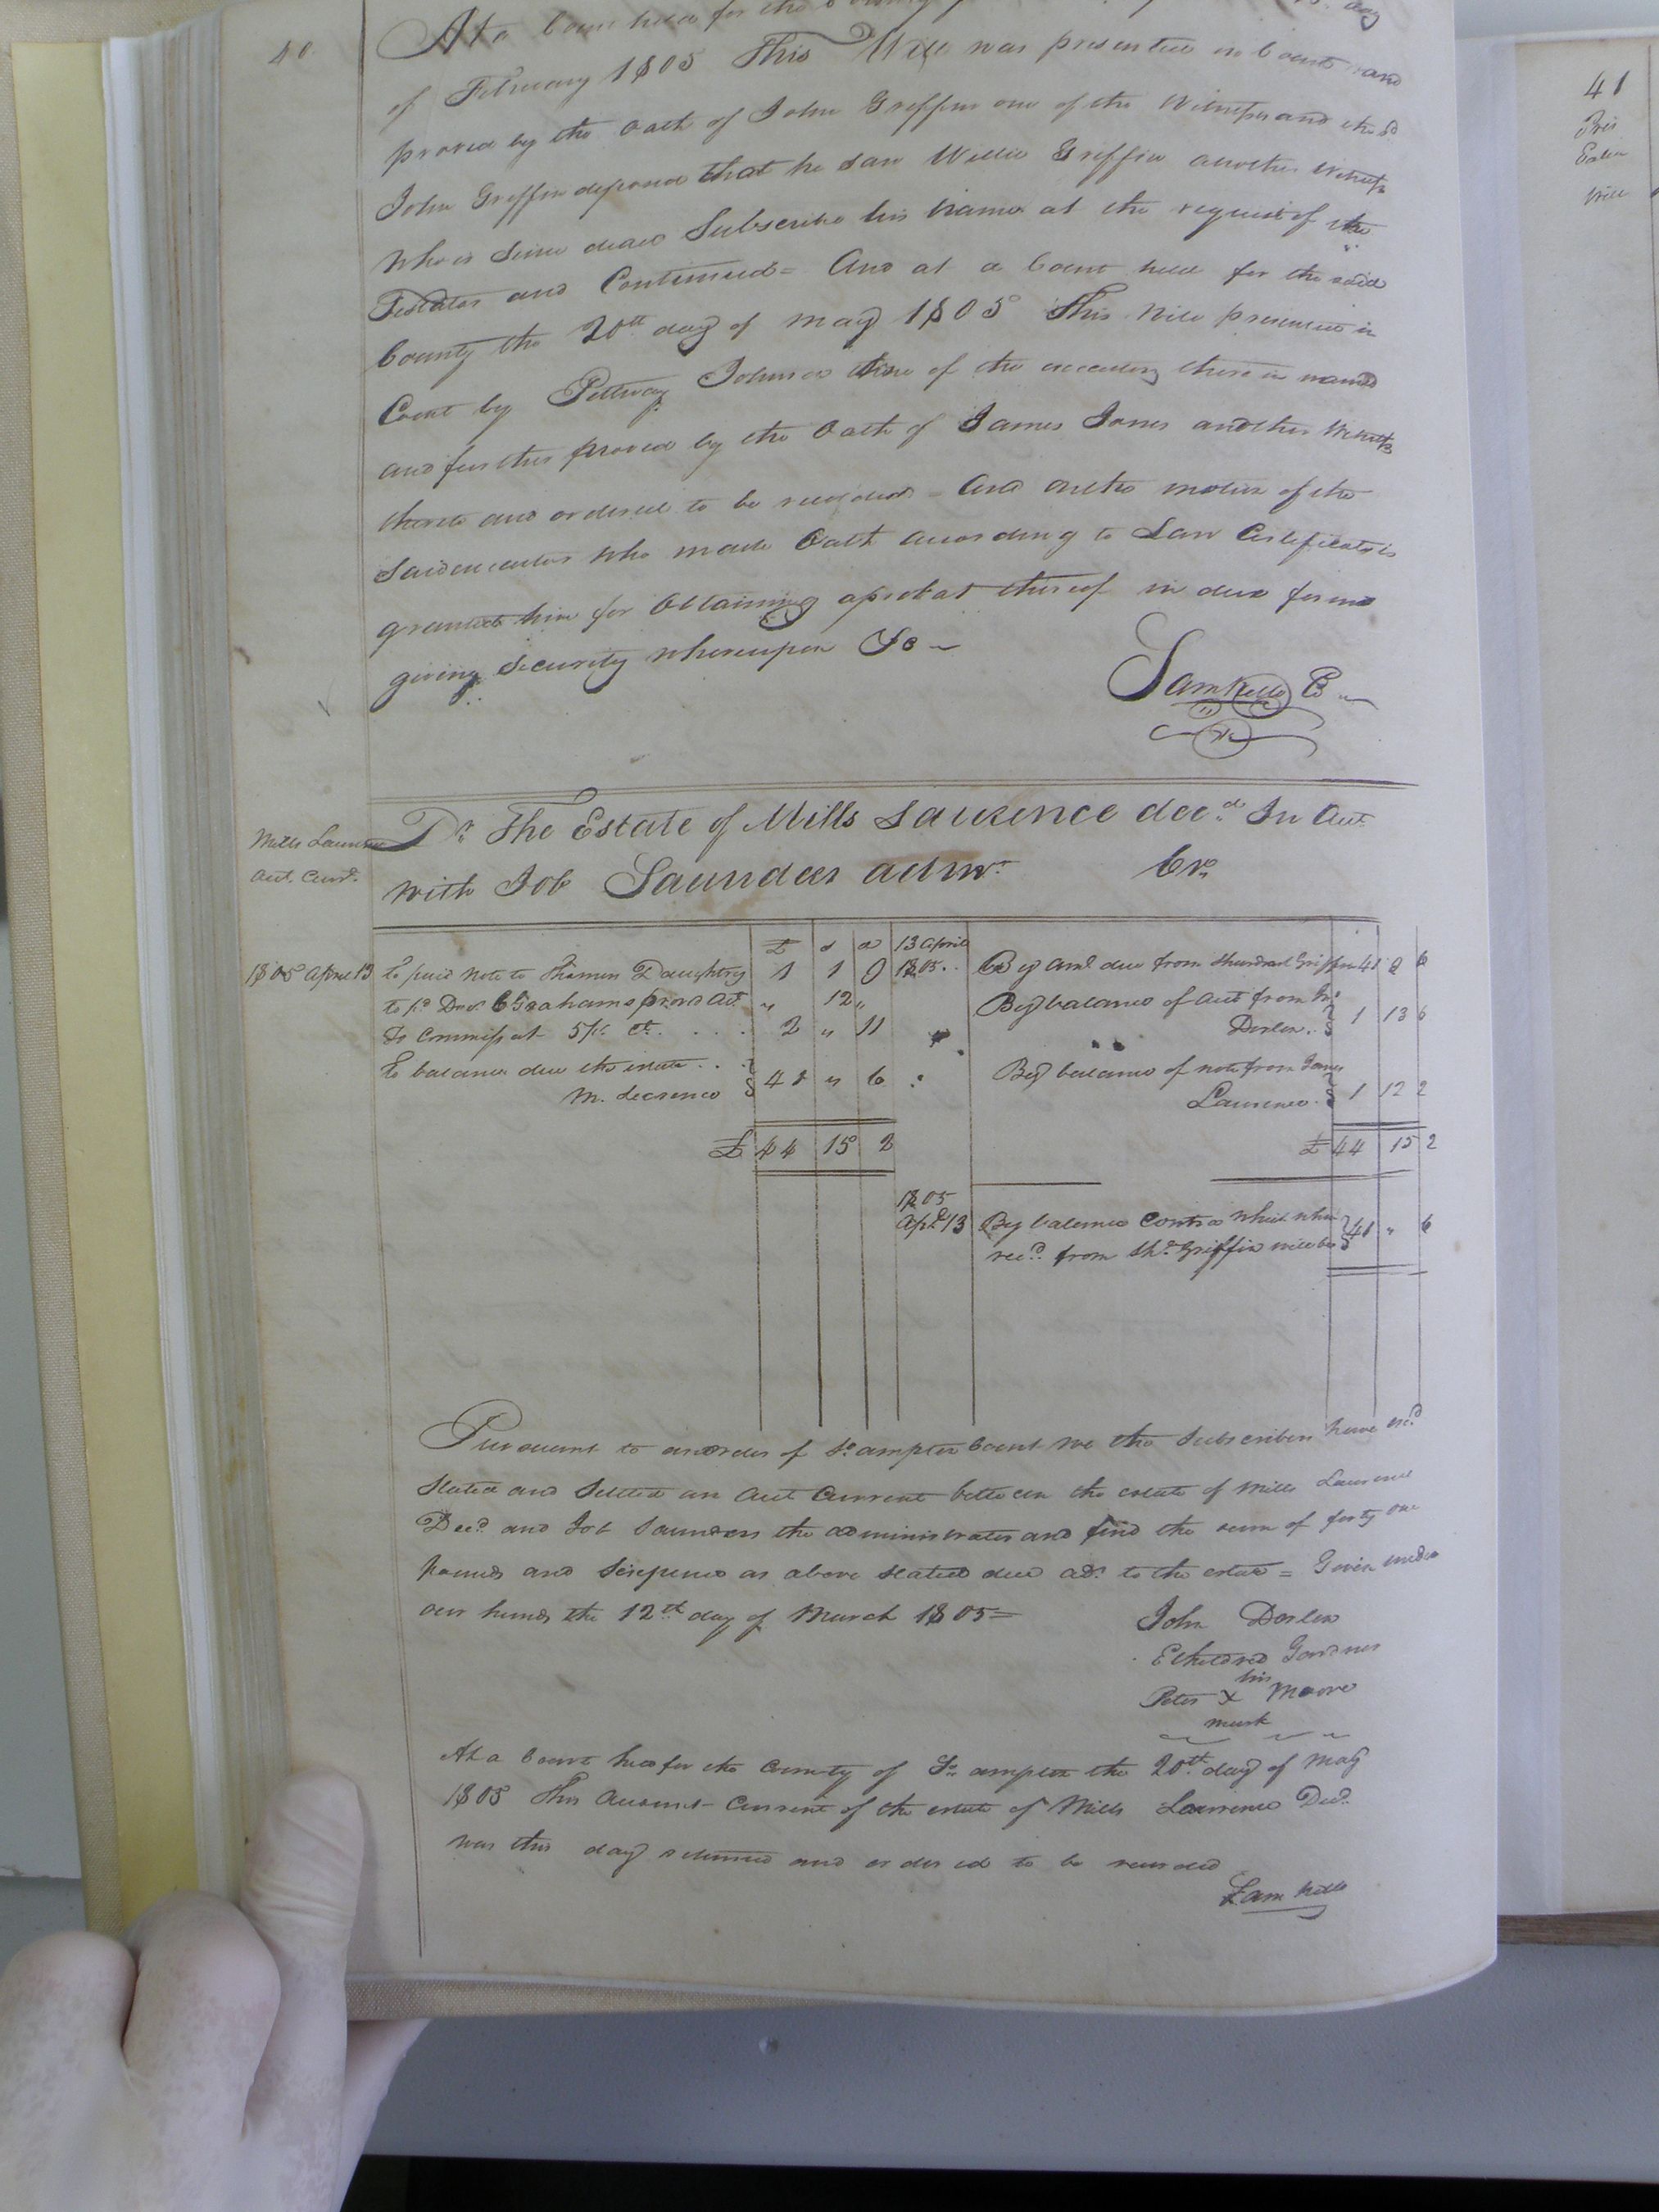 40
At a Court held for the County
of February 1805 This Will was presented in Court and
proved by the Oath of John Griffin one of the Witnesses and the sd
John Griffin deposed that he saw Willie Griffin another Witness
who is since dead Subscribe his name at the request of the
Testator and Continued = And at a Court held for the said
County the 20th day of May 1805 This Will presented in
Court by Pettway Johnson One of the executors therein named
and further proved by the Oath of James Jones another Witness
thereto and ordered to be recorded = And on the motion of the
said executor who made Oath according to Law Certificate is
granted him for Obtaining a probat thereof in due form
giving Security whereupon &c
Sam Kello C
Mills Laurence
Acct. Curt.
Dr. The Estate of Mills Laurence decd. In Acct
with Job Saunders admr. Cr.
£ s d 13 April
1805 April 13 To paid Note to Daughtry 1 1 9 1805 By amt due from Griffin 41 9 6
to pd. Doc. Grahams prov'd Act. " 12 " By balance of Acct from
To Commiss at 5 pr. Ct. 2 " 11 Darden 1 13 6
To balance due the estate By balance of note from James
M. Lawrence 41 " 6 Laurence 1 12 2
£ 44 15 2 £ 44 15 2
1805
Apl. 13 By balance Contra which when 41 " 6
recd. from Shd. Griffin will be
Pursuant to an order of So.ampton Court we the Subscribers have
Stated and Settled an Acct Current between the estate of Mills Laurence
Decd. and Job Saunders the administrator and find the sum of forty one
pounds and Sixpence as above stated due to the estate = Given under
our hands the 12th day of March 1805 =
John Darden
Etheldred Gardner
his
Peter X Moore
mark
At a Court held for the County of So.ampton the 20th day of May
1805 This Account Current of the estate of Mills Lawrence Decd.
was this day returned and ordered to be recorded
Sam Kello
41
Will